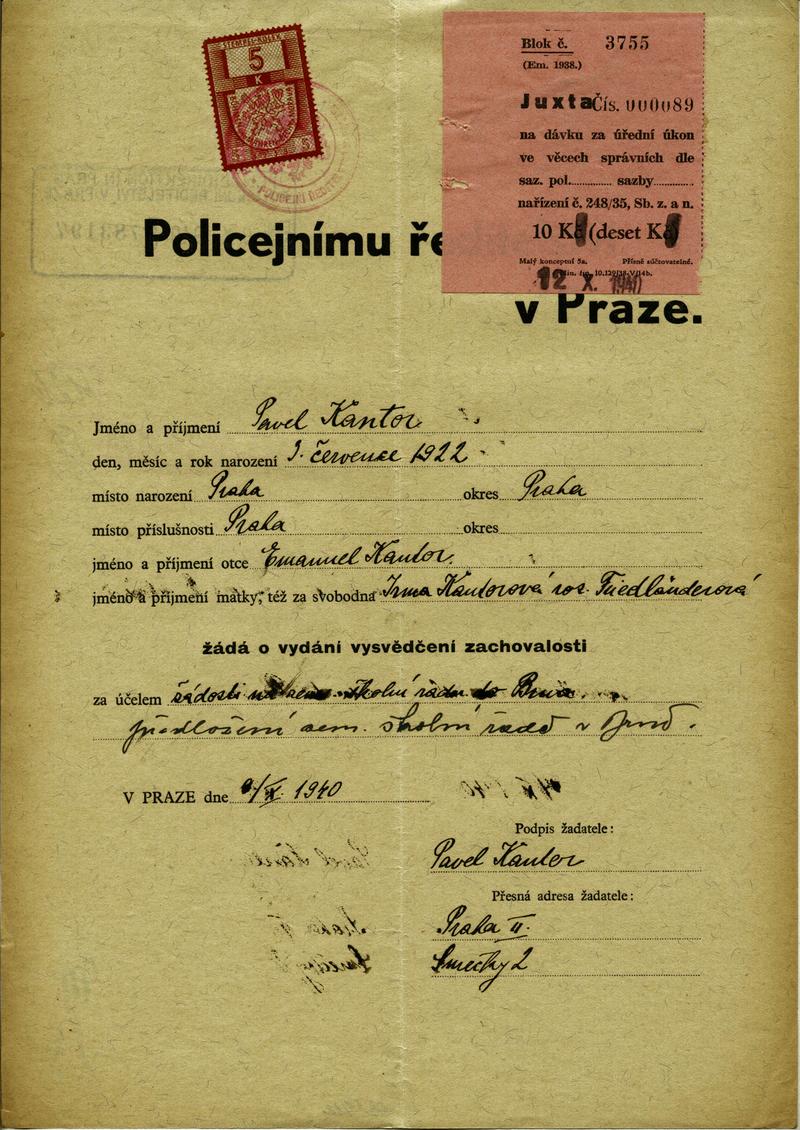 STEMPEL-KOLEK
5
K
POLICEJNÍ ŘEDIT
Blok č. 3755
(Em. 1938.)
Juxta Čís. 000089
na dávku za úřední úkon
ve věcech správních dle
saz. pol. ............ sazby ............
nařízení č. 248/35, Sb. z. a n.
10 K (deset K
Malý konceptní 5a. Přísně súčtovatelné.
12 X. 1940
Policejnímu ře
v Praze.
Jméno a příjmení Pavel Kantor
den, měsíc a rok narození 9. července 1922
místo narození Praha okres Praha
místo příslušnosti Praha okres
jméno a příjmení otce Emanuel Kantor.
jméno a příjmení matky, též za svobodna Irma Kantorová roz. Friedländerová
žádá o vydání vysvědčení zachovalosti
za účelem žádosti školní radu do Brna.
předložení zem. školní radě v Brně.
V PRAZE dne 9/X. 1940
Podpis žadatele:
Pavel Kantor
Přesná adresa žadatele:
Praha II.
Smečky 2